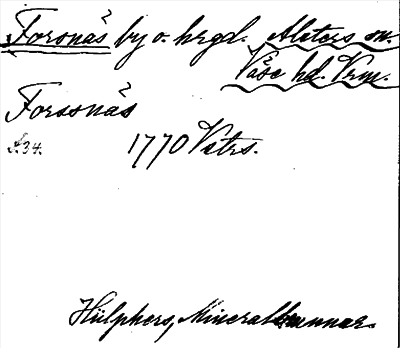 Forsnäs by o. hrgd. Alsters sn.
Väse hd. Vrm.
Forssnäs
s. 34. 1770 Vatrs.
Hülphers, Mineralbrunnar.